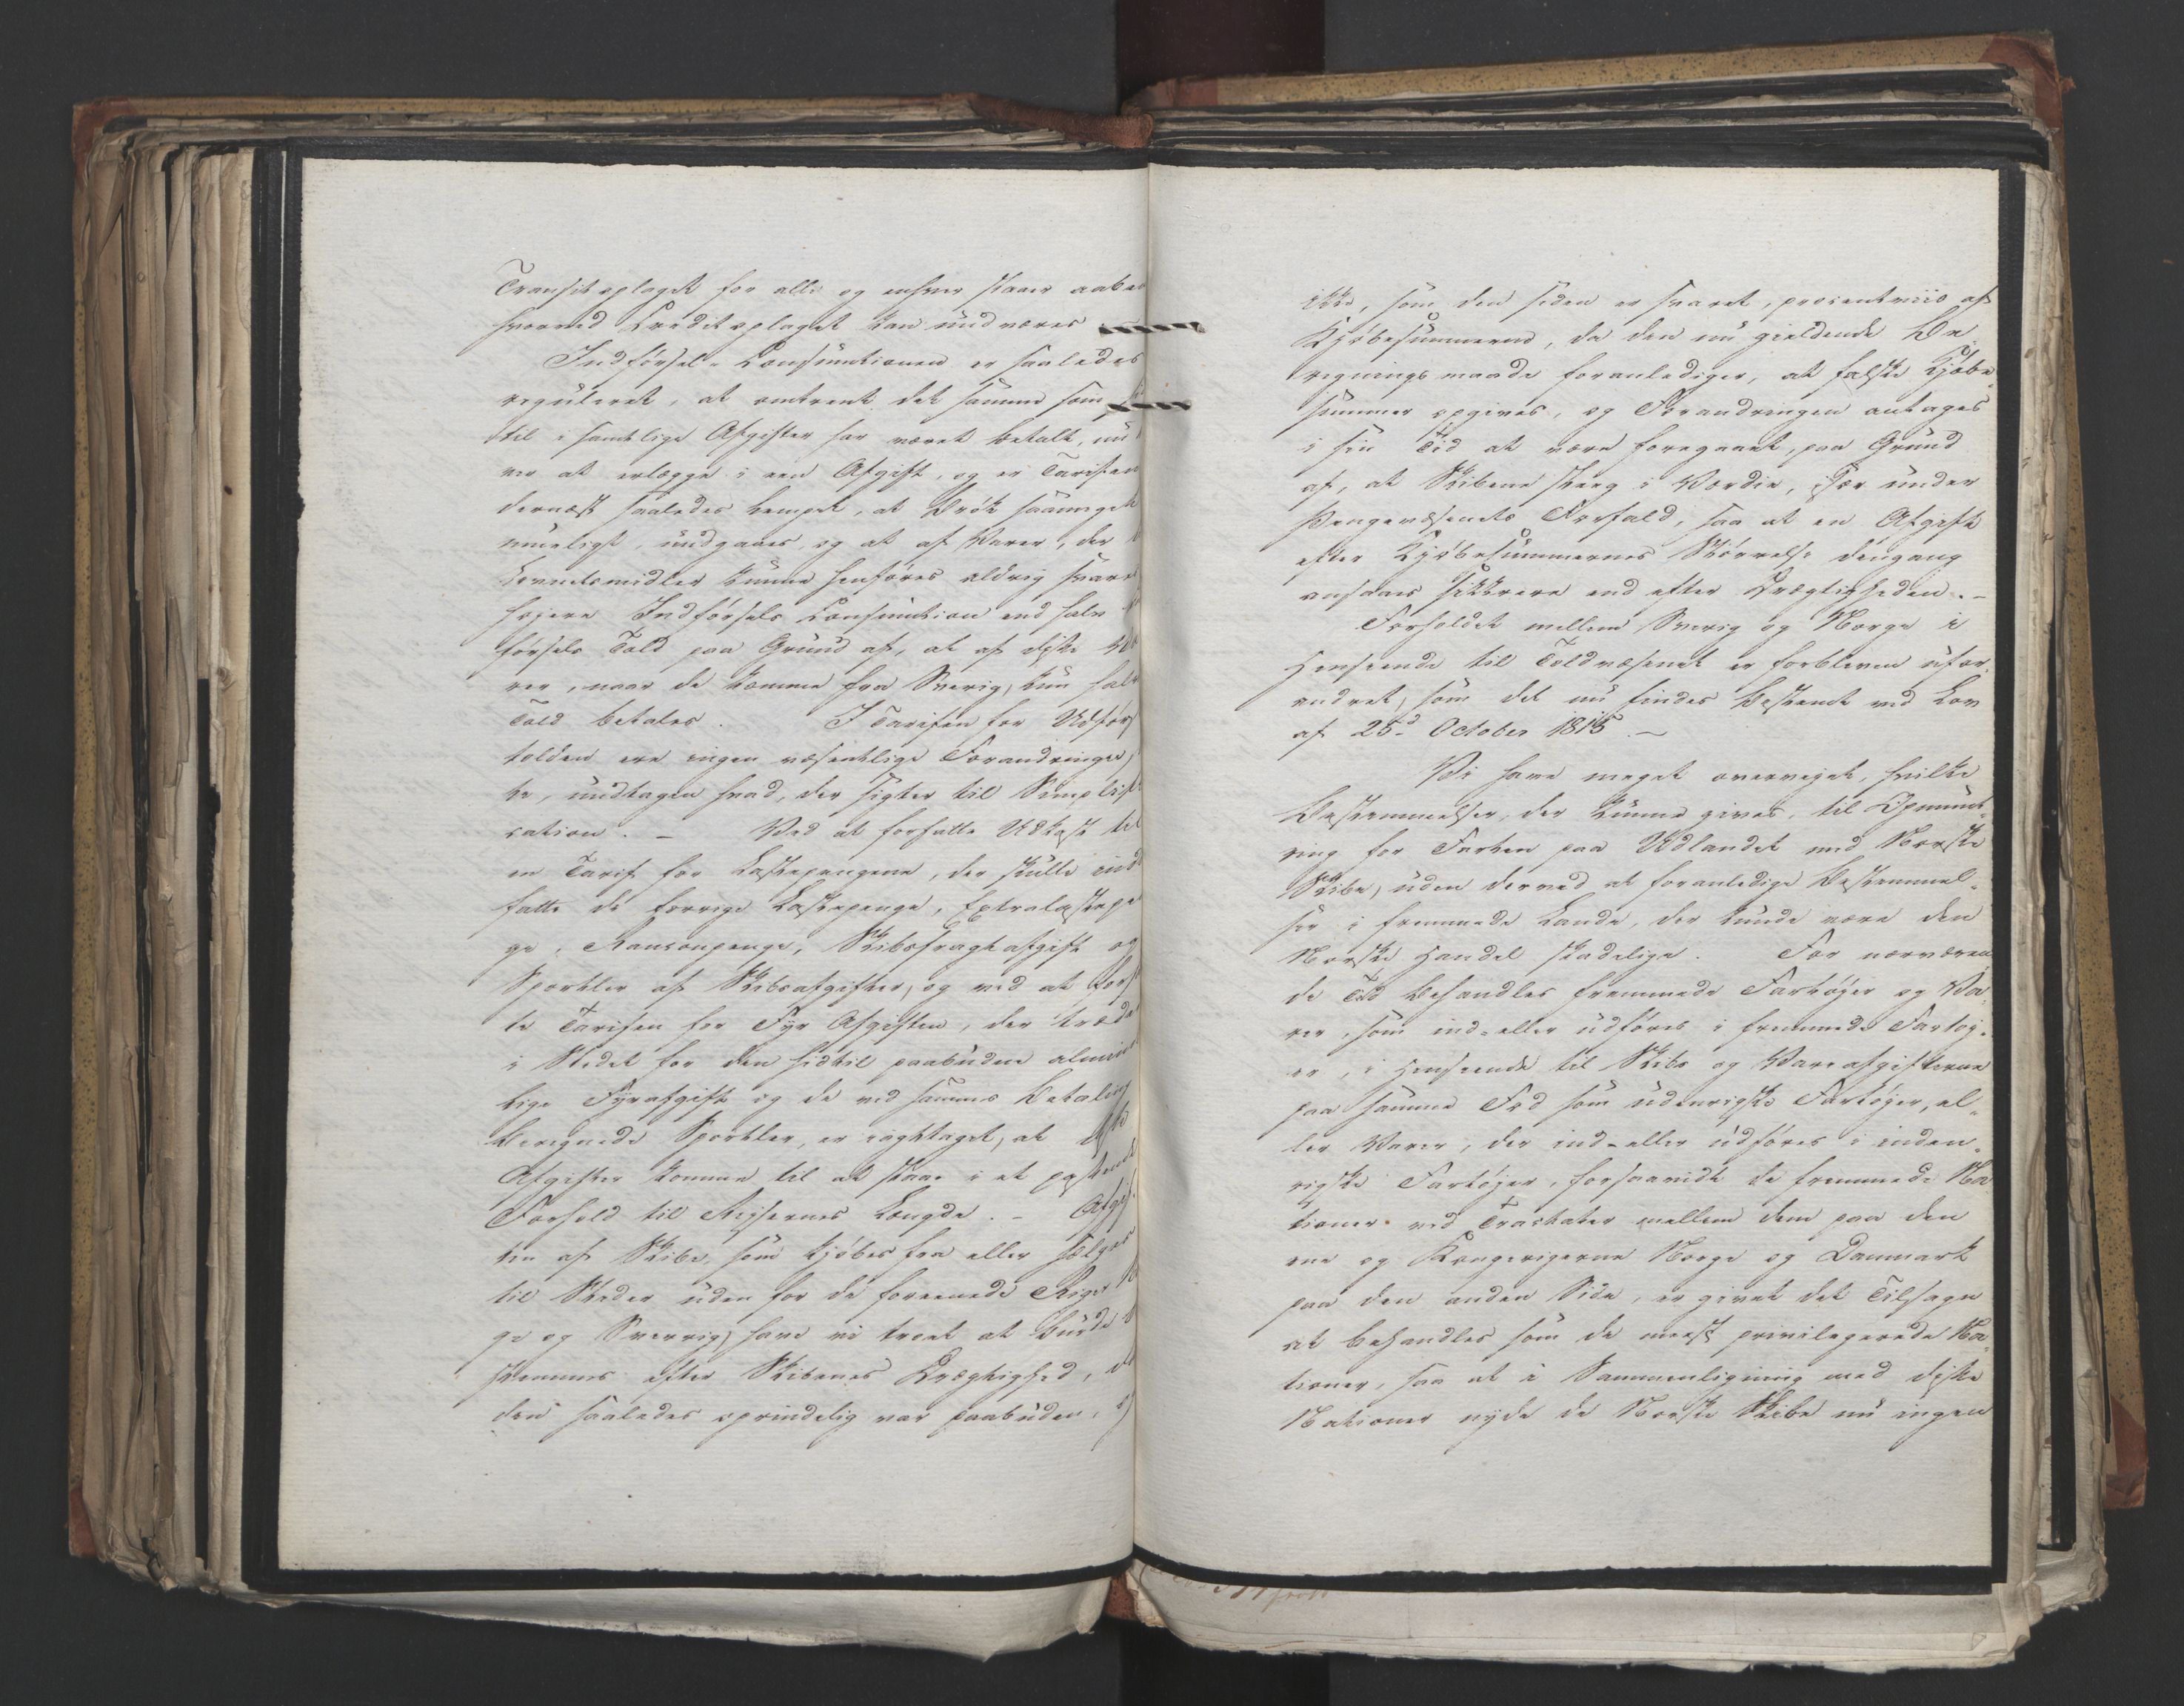 Transitoplaget for alle og enhver staaer aaben
hvorved Creditoplaget kan undværes
Indførsel-Consumtionen er saaledes
reguleret, at omtrent det samme som
til i samtlige Afgifter har været betalt, nu
ver at erlægge i een Afgift, og er Tariffen
dernæst saaledes lempet, at Brøk saameget
mueligt, undgaaes, og at af Varer, der
Levnetsmidler kunne henføres aldrig svares
høiere Indførsels Consumtion end halv
førsels Told paa Grund af, at af disse Va
rer, naar de komme fra Sverig, kun halv
Told betales. I Tariffen for Udførs
tolden ere ingen væsentlige Forandringer,
te, undtagen hvad, der sigter til Simplifi
cation. – Ved at forfatte Udkast til
en Tarif for Lastepengene, der skulle ind
fatte de forrige Lastepenge, Extralastepe
ge, Ransonpenge, Skibsfragtafgift og
Sportler af Skibsafgifter, og ved at forfat
te Tariffen for Fyr Afgiften, der træder
i Stedet for den hidtil paabudne alminde
lige Fyrafgift og de ved sammes Betaling
beregnede Sportler, er iagttaget, at disse
Afgifter komme til at staae i et passende
Forhold til Reisernes Længde. – Afgif
ten af Skibe, som kjøbes fra eller sælges
til Steder uden for de foreenede Riger No
ge og Sverrig, have vi troet at burde be
stemmes efter Skibenes Drægtighed, da
den saaledes oprindelig var paabuden, og
ikke, som den siden er svaret, procentviis af
Kjøbesummerne, da den nu gieldende Be
regningsmaade foranlediger, at falske Kjøbe
summer opgives, og Forandringen antages
i sin Tid at være foregaaet, paa Grund
af, at Skibene steeg i Værdie, især under
Pengevæsenets Forfald, saa at en Afgift
efter Kjøbesummernes Størrelse dengang
ansaaes sikkrere end efter Drægtigheden. –
Forholdet mellem Sverig og Norge i
Henseende til Toldvæsenet er forbleven ufor,
andret, som det nu findes bestemt ved Lov
af 25d October 1815. –
Vi have meget overveiet, hvilke
Bestemmelser, der kunne gives, til Opmunt,
ring for Farten paa Udlandet med Norske
Skibe, uden derved at foranledige Bestemmel,
ser i fremmede Lande, der kunde være den
Norske Handel skadelige. For nærværen
de Tid behandles fremmede Fartøjer og Va,
rer, som ind- eller udføres i fremmede Fartøj,
er, i Henseende til Skibs og Vareafgifterne
paa samme Fod som indenrigske Fartøjer, el,
ler Varer, der ind- eller udføres i inden,
rigske Fartøjer, forsaavidt de fremmede Na
tioner ved Tractater mellem dem paa den
ene og Kongerigerne Norge og Danmark
paa den anden Side, er givet det Tilsagn
at behandles som de meest privilegerede Na,
tioner, saa at i Sammenligning med disse
Nationer nyde de Norske Skibe nu ingen